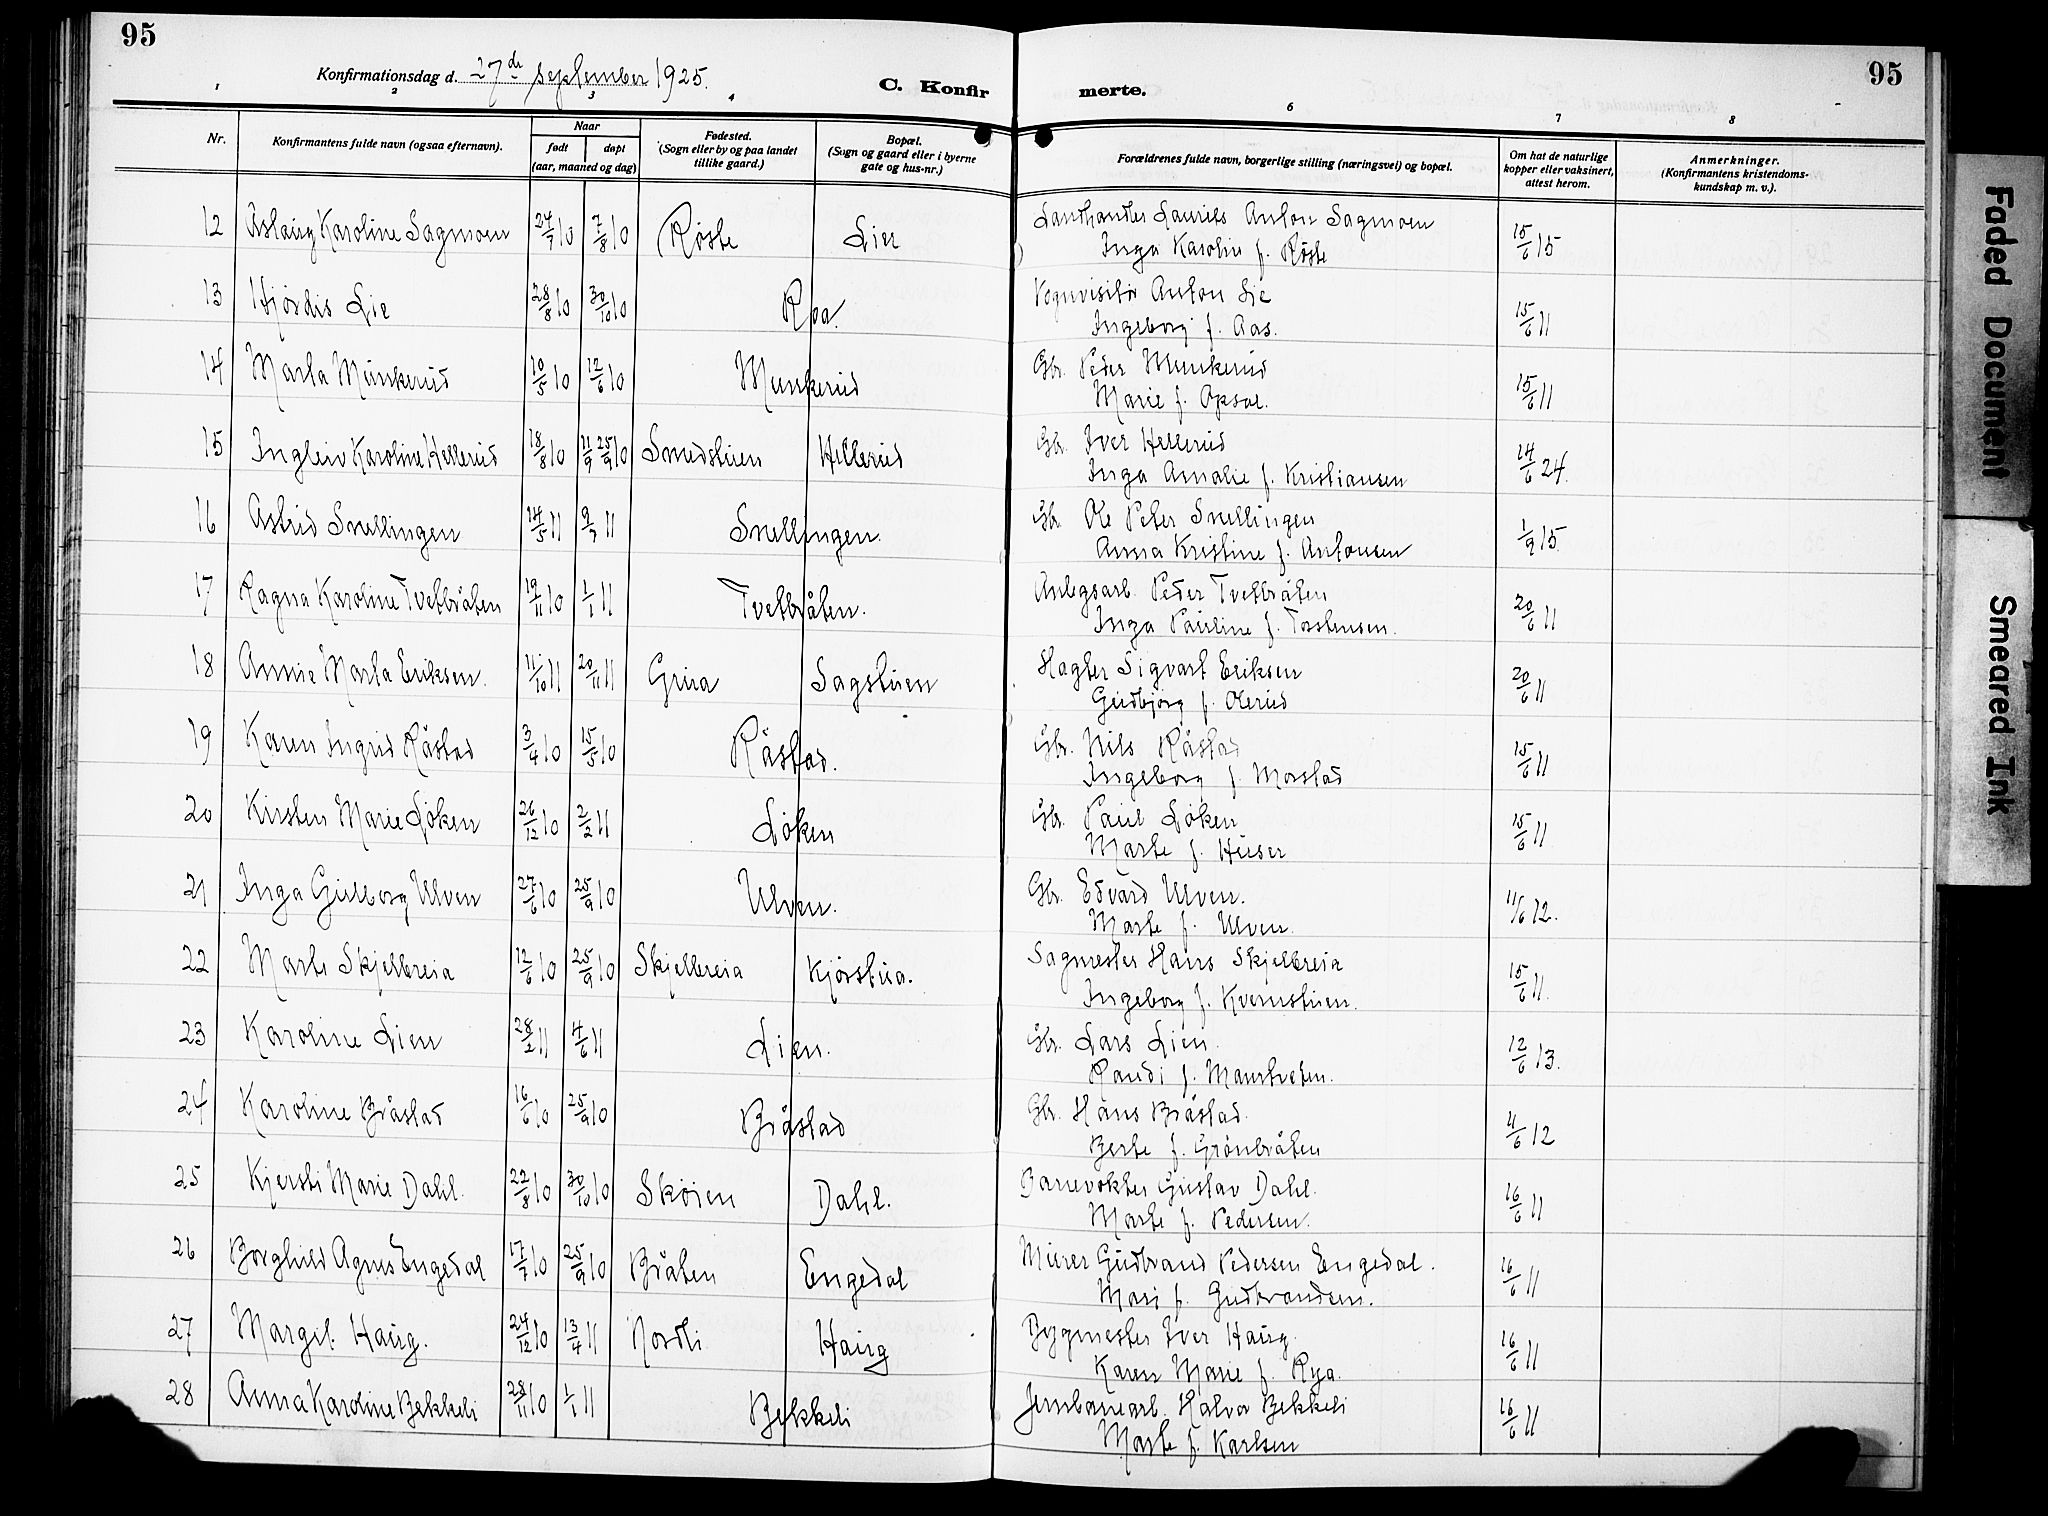 95
95
Konfirmationsdag d. 27de september 1925.
C. Konfirmerte.
1 2 3 4 6 7 8
Nr.
Konfirmantens fulde navn (ogsaa efternavn).
Naar
født døpt
(aar, maaned og dag)
Fødested.
(Sogn eller by og paa landet
tillike gaard.)
Bopæl.
(Sogn og gaard eller i byerne
gate og hus-nr.)
Forældrenes fulde navn, borgerlige stilling (næringsvei) og bopæl.
Om hat de naturlige
kopper eller vaksinert,
attest herom.
Anmerkninger.
(Konfirmantens kristendoms-
kundskap m. v.).
12 Aslaug Karoline Sagmoen 24/7 10 7/8 10 Røste Lier Landhandler Laurits Anton Sagmoen 15/6 15
Inga Karolin f. Røste
13 Hjørdis Lie 28/8 10 30/10 10 Roa. Vognvisitør Anton Lie 15/6 11
Ingeborg f. Aas.
14 Marta Munkerud 10/5 10 12/6 10 Munkerud Gbr. Peder Munkerud 15/6 11
Marie f. Opsal.
15 Ingleiv Karoline Hellerud 18/8 10 11/9 25/9 10 Smedstuen Hellerud Gbr. Iver Hellerud 14/6 24.
Inga Amalie f. Kristiansen
16 Astrid Snellingen 14/5 11 9/7 11 Snellingen. Gbr. Ole Peter Snellingen 1/9 15.
Anna Kristine f. Antonsen
17 Ragna Karoline Tvetbråten 19/11 10 1/1 11 Tvetbråten. Anlegsarb. Peder Tvetbråten 20/6 11
Inga Pauline f. Torstensen.
18 Annie Marta Eriksen. 11/10 11 20/11 11 Grua Sagstuen Sigvart Eriksen 20/6 11
Gudbjørg f. Olerud
19 Karen Ingrid Råstad 3/4 10 15/5 10 Råstad. Gbr. Nils Råstad 15/6 11
Ingeborg f. Morstad
20 Kirsten Marie Løken 26/12 10 2/2 11 Løken Gbr. Paul Løken 15/6 11
Marte f. Huser
21 Inga Gulborg Ulven 27/6 10 25/9 10 Ulven. Gbr. Edvard Ulven. 11/6 12.
Marte f. Ulven.
22 Marte Skjelbreia 12/6 10 25/9 10 Skjelbreia Kjørstua. Sagmester Hans Skjelbreia 15/6 11.
Ingeborg f. Kvernstuen.
23 Karoline Lien 28/2 11 4/6 11 Lien. Gbr. Lars Lien. 12/6 13.
Randi f. Maurtveten.
24 Karoline Bråstad 16/6 10 25/9 10 Bråstad Gbr. Hans Bråstad. 4/6 12
Berte f. Grønbråten
25 Kjersti Marie Dahl. 22/8 10 30/10 10 Skøien Dahl. Banevokter Gustav Dahl. 16/6 11
Marte f. Pedersen.
26 Borghild Agnes Engedal 17/7 10 25/9 10 Bråten Engedal Murer Gudbrand Pedersen Engedal. 16/6 11
Mari f. Gudbrandsen.
27 Margit Haug. 24/12 10 13/4 11 Nordli Haug Bygmester Iver Haug. 16/6 11
Karen Marie f. Rya.
28 Anna Karoline Bekkeli 28/11 10 1/1 11 Bekkeli Jernbanearb. Halvor Bekkeli 16/6 11
Marte f. Karlsen
Faded Document
Smeared Ink